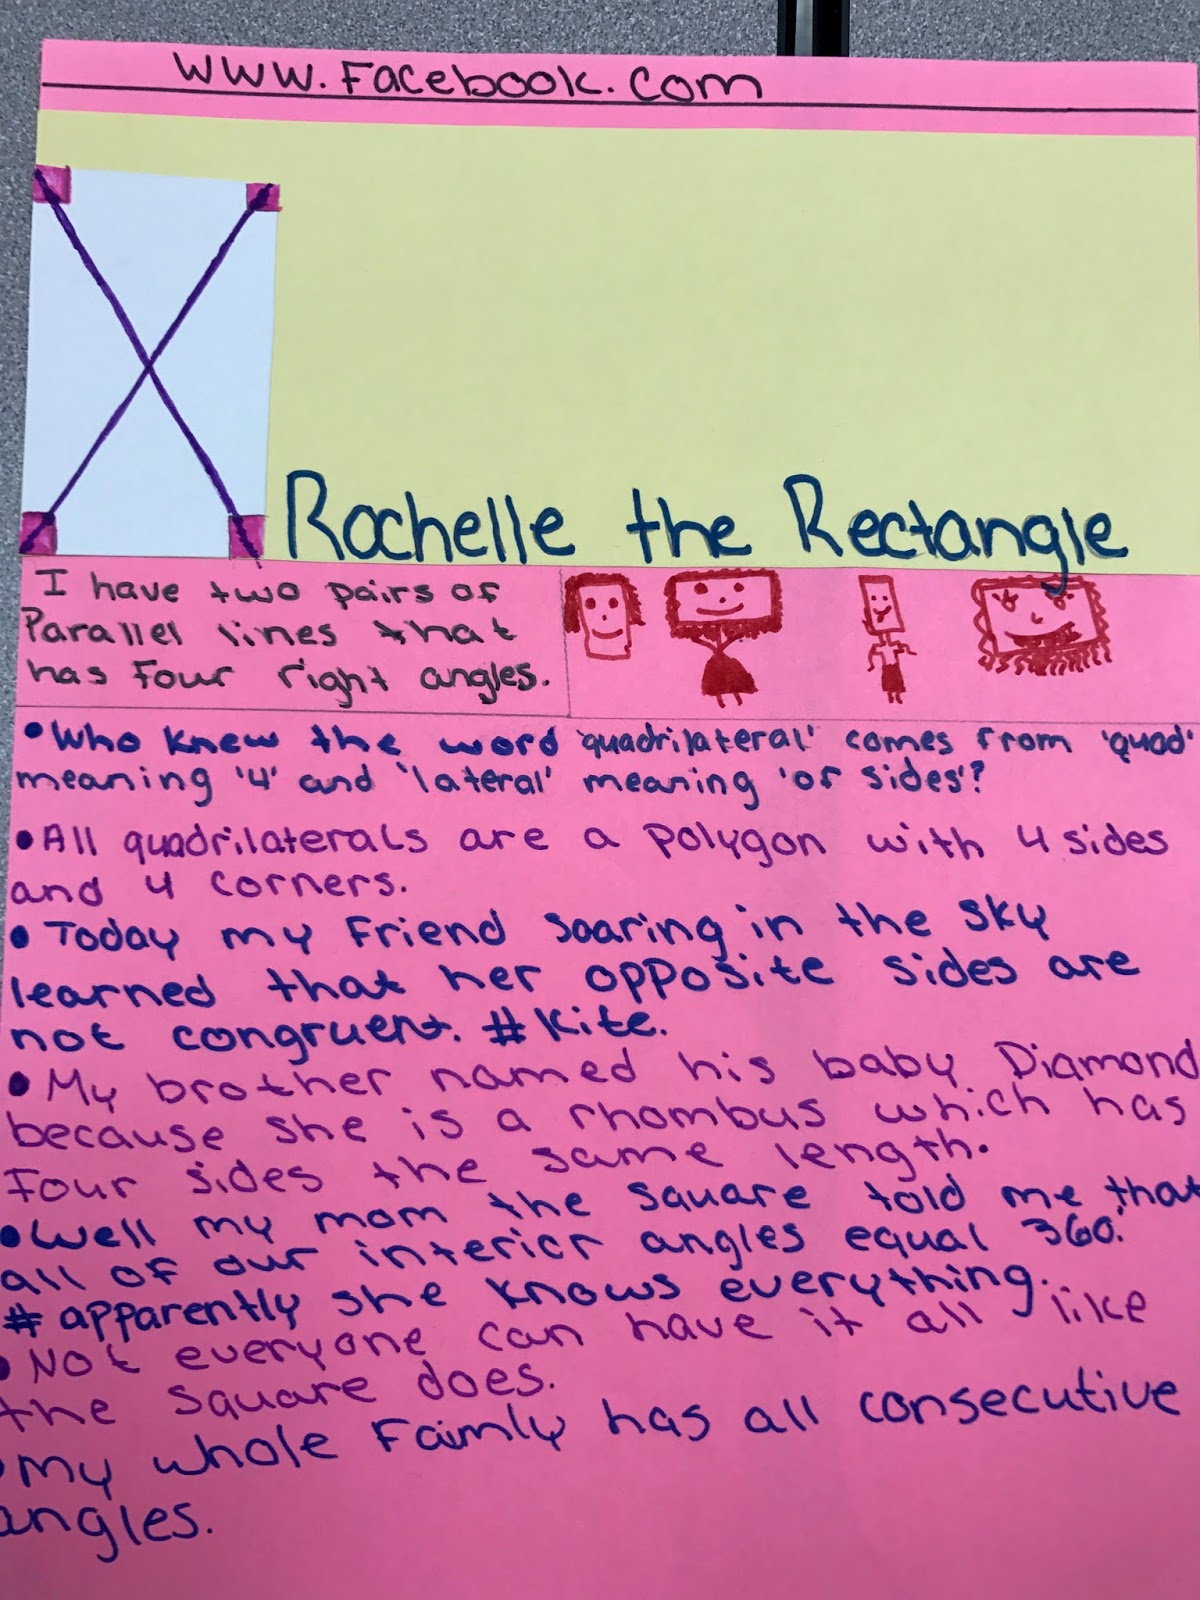 www.Facebook.com
Rochelle the Rectangle
I have two pairs of
Parallel lines that
has Four right angles.
•Who knew the word 'quadrilateral' comes from 'quad'
meaning '4' and 'lateral' meaning 'of sides'?
•All quadrilaterals are a polygon with 4 sides
and 4 corners.
•Today my Friend soaring in the sky
learned that her opposite sides are
not congruent. #Kite.
•My brother named his baby Diamond
because she is a rhombus which has
Four sides the same length.
•Well my mom the square told me that
all of our interior angles equal 360.
# apparently she knows everything.
•Not everyone can have it all like
the square does.
•My whole Faimly has all consecutive
angles.